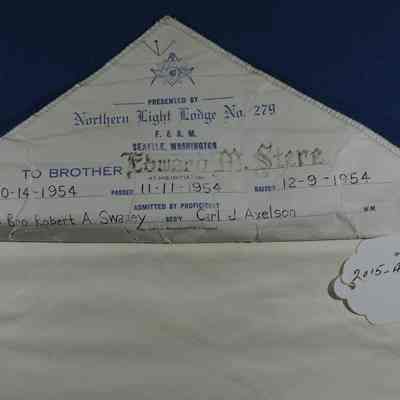 PRESENTED BY
Northern Light Lodge No. 279
F. & A. M.
SEATTLE, WASHINGTON
TO BROTHER Edward M. Stere
0-14-1954 PASSED 11-11-1954 RAISED 12-9-1954
ADMITTED BY PROFICIENT
Bro Robert A. Swazey SEC'Y Carl J. Axelson W.M.
2015-A